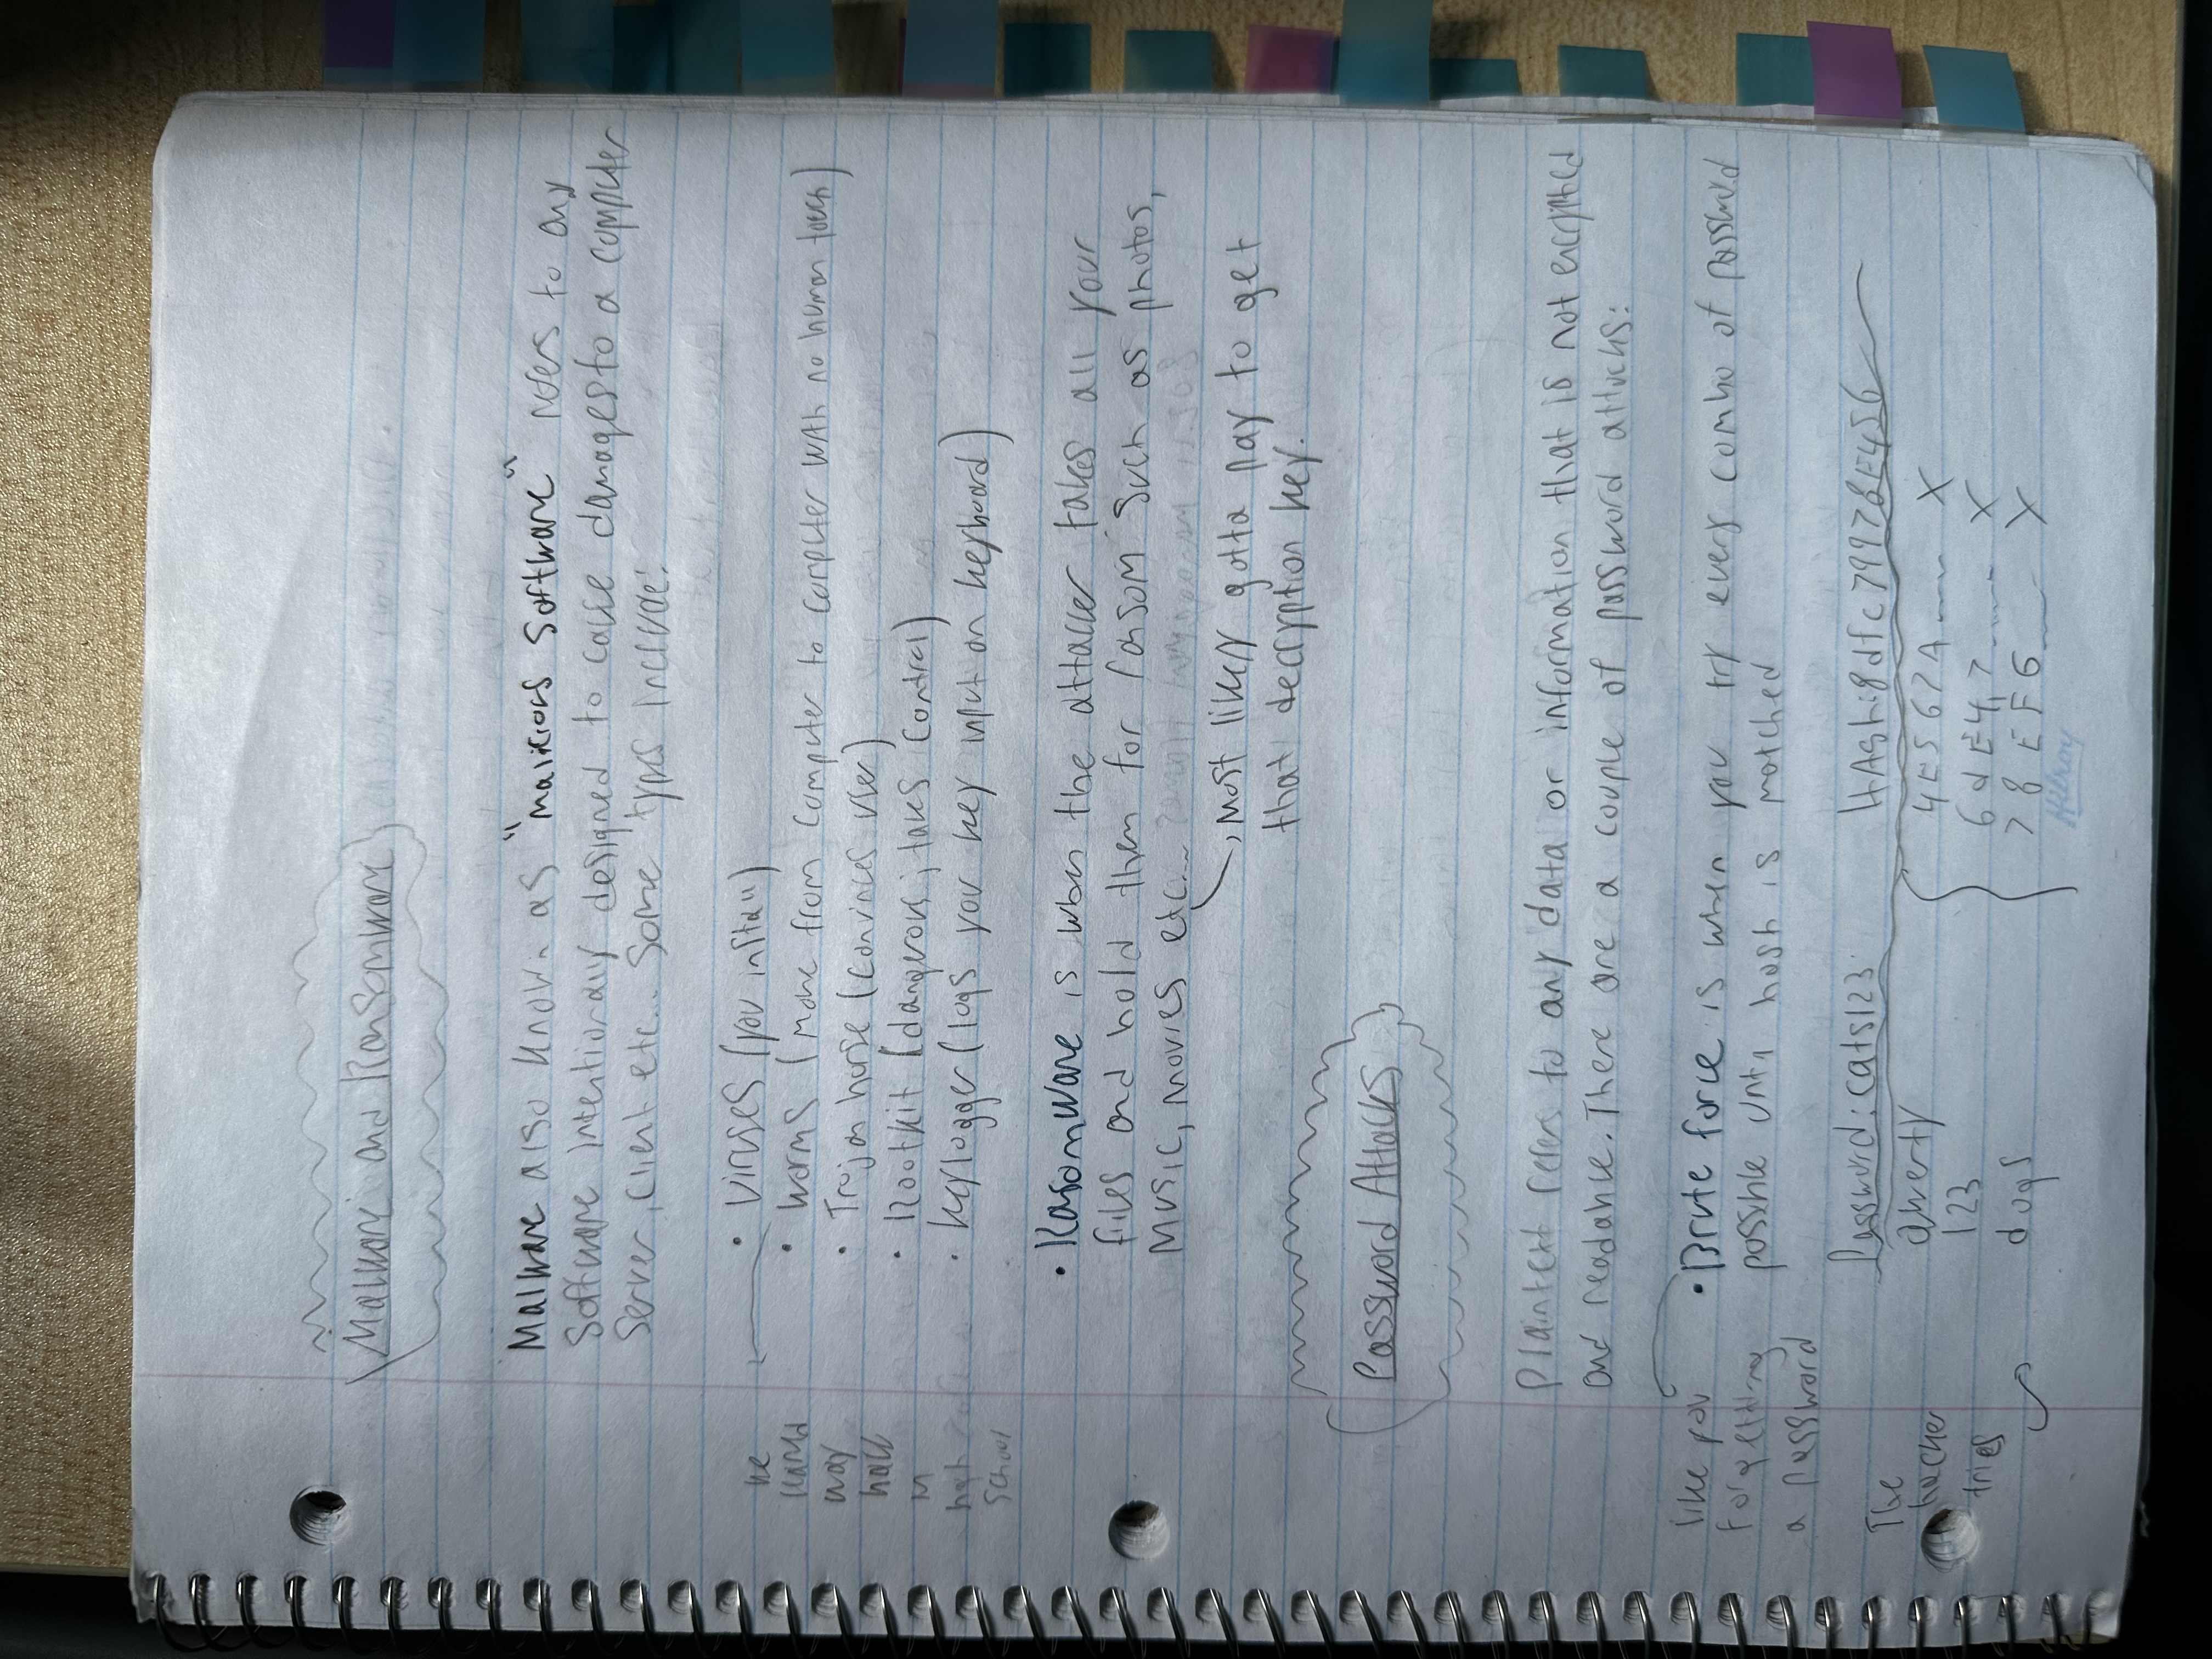 Malware and Ransomware
Malware also known as "malicious software" refers to any
software intentionally designed to cause damages to a computer
server, client etc... Some types include:
• Viruses (you install)
• Worms (move from computer to computer with no human touch)
• Trojan horse (convinces user)
• Rootkit (dangerous; takes control)
• Keylogger (logs you key input on keyboard)
we
learned
way
back
in
high
school
• Ransomware is when the attacker takes all your
files and hold them for ransom such as photos,
music, movies etc...
most likely gotta pay to get
that decryption key.
Password Attacks
Plaintext refers to any data or information that is not encrypted
and readable. There are a couple of password attacks:
like you
forgetting
a password
• Brute force is when you try every combo of password
possible until hash is matched
Password: cats123 HASh: 8dfc79978E456
The
hacker
tries
qwerty 4E567A.... X
123 6dE47..... X
dogs 78EF6... X
Hilroy